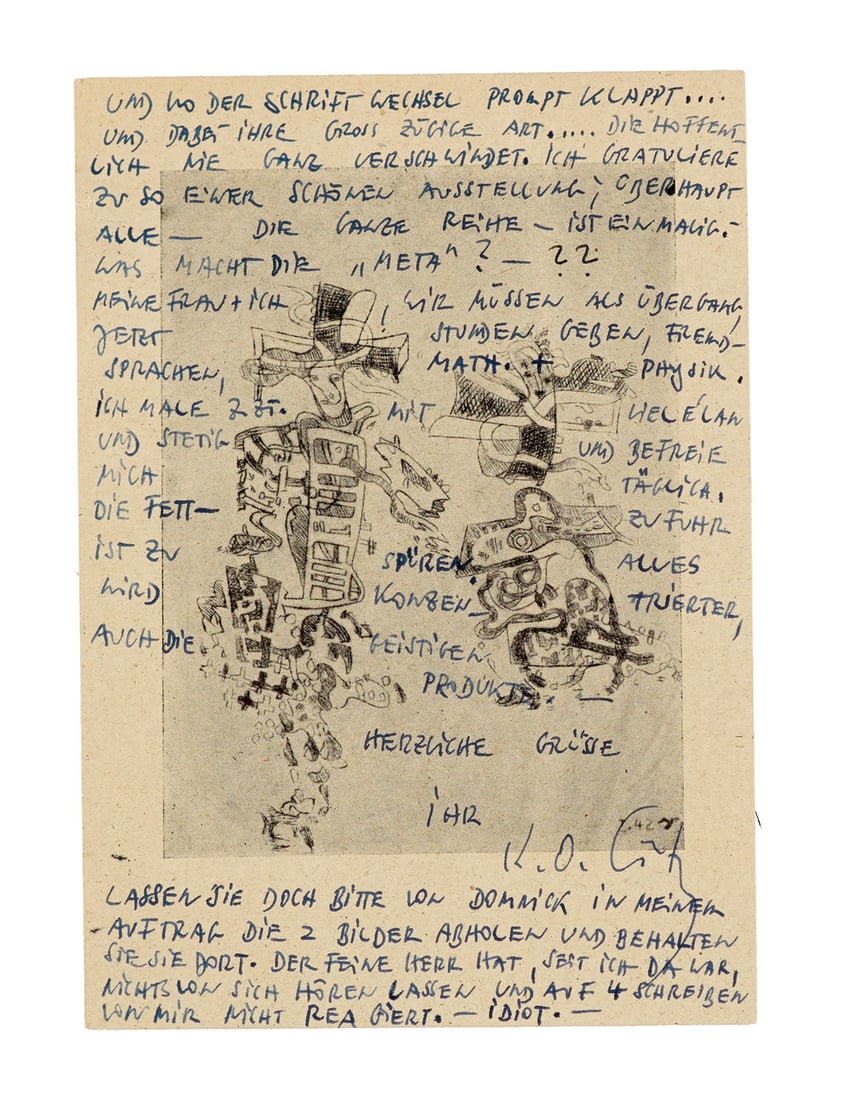 UND WO DER SCHRIFTWECHSEL PROMPT KLAPPT....
UND DABEI IHRE GROSSZÜGIGE ART..... DIE HOFFENT-
LICH NIE GANZ VERSCHWINDET. ICH GRATULIERE
ZU SO EINER SCHÖNEN AUSSTELLUNG; ÜBERHAUPT
ALLE — DIE GANZE REIHE — IST EINMALIG.-
WAS MACHT DIE „META" ? — ? ?
MEINE FRAU + ICH , WIR MÜSSEN ALS ÜBERGANG
JETZT STUNDEN GEBEN, FREMD-
SPRACHEN, MATH. + PHYSIK.
ICH MALE ZZT. MIT VIEL ÉLAN
UND STETIG UND BEFREIE
MICH TÄGLICH.
DIE FETT- ZUFUHR
IST ZU SPÜREN. ALLES
WIRD KONZEN- TRIERTER,
AUCH DIE GEISTIGEN
PRODUKTE. —
HERZLICHE GRÜSSE
IHR
K. O. Götz
LASSEN SIE DOCH BITTE VON DOMNICK IN MEINEM
AUFTRAG DIE 2 BILDER ABHOLEN UND BEHALTEN
SIE SIE DORT. DER FEINE HERR HAT, SEIT ICH DA WAR,
NICHTS VON SICH HÖREN LASSEN UND AUF 4 SCHREIBEN
VON MIR NICHT REAGIERT. — IDIOT. —